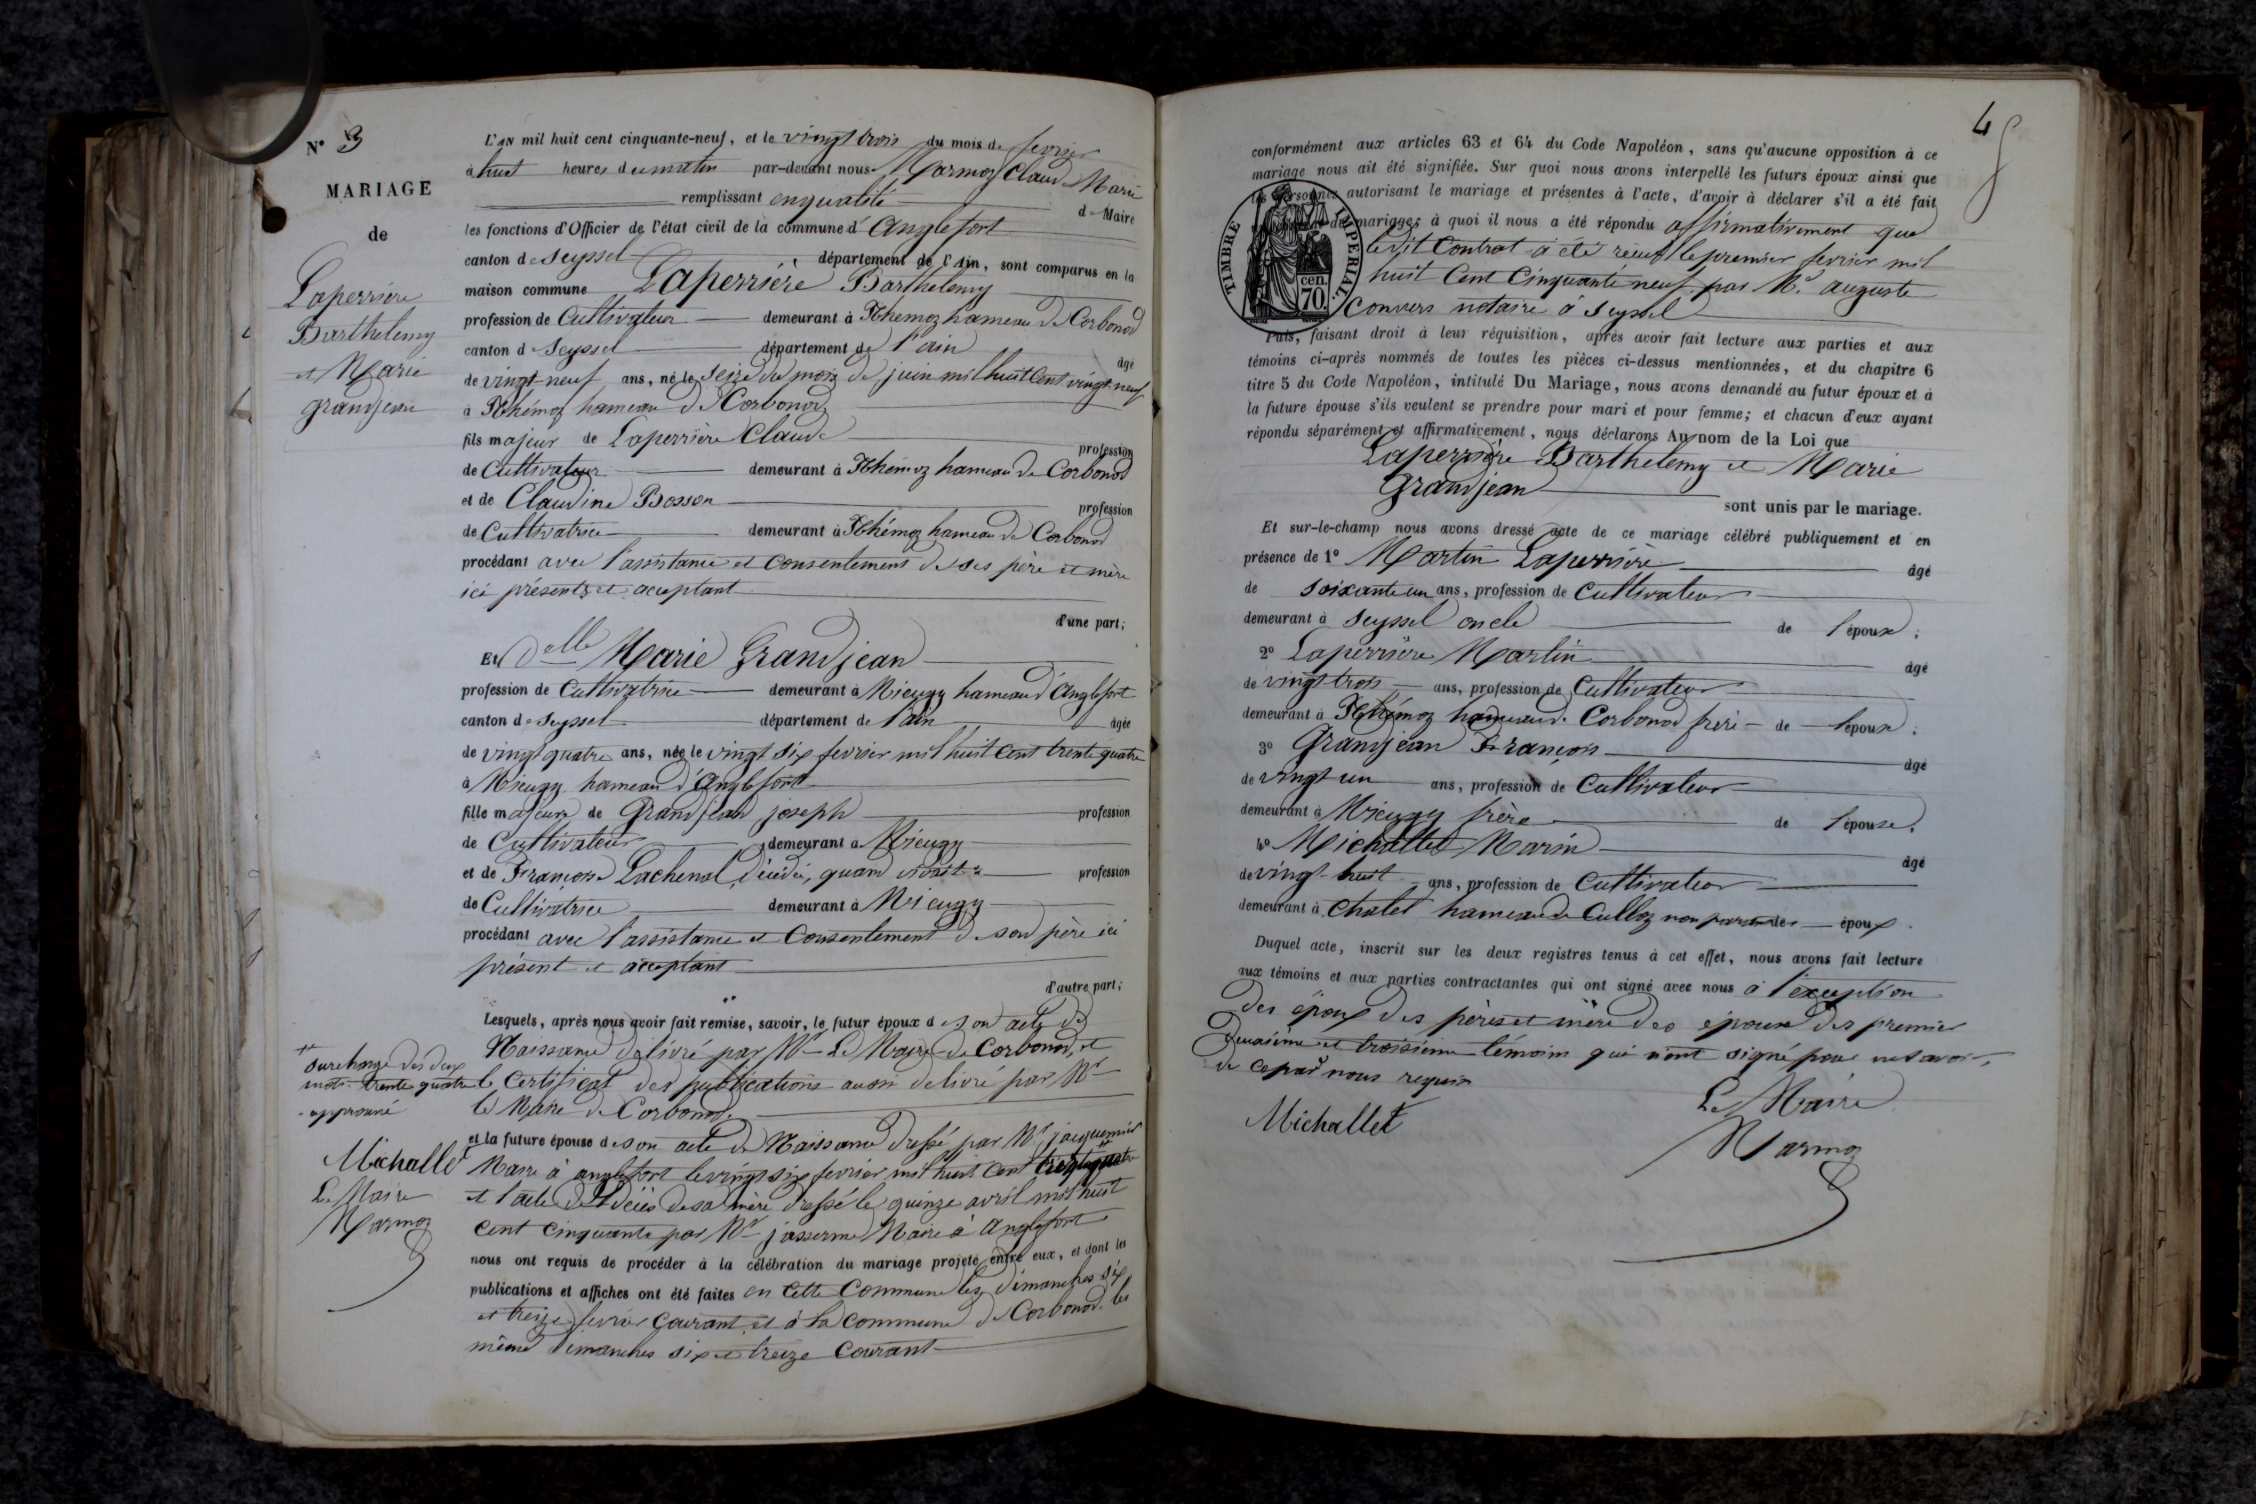 N° 3
MARIAGE
de
Laperrière
Barthelemy
et Marie
grandjean
L'AN mil huit cent cinquante-neuf, et le vingt trois du mois de fevrier
à huit heures du matin par-devant nous Marmoz Claud Marie
remplissant en qualité de Maire
les fonctions d'Officier de l'état civil de la commune d'Anglefort
canton de Seyssel département de l'Ain, sont comparus en la
maison commune Laperrière Barthelemy
profession de Cultivateur demeurant à Rhemoz hameau de Corbonod
canton de Seyssel département de l'ain âgé
de vingt-neuf ans, né le seize du mois de juin mil huit cent vingt-neuf
à Rhémoz hameau de Corbonod
fils majeur de Laperrière Claude profession
de Cultivateur demeurant à Rhémoz hameau de Corbonod
et de Claudine Bosson profession
de Cultivatrice demeurant à Rhémoz hameau de Corbonod
procédant avec l'assistance et consentement de ses père et mère
ici présents et acceptant
d'une part;
Et Delle Marie Grandjean
profession de Cultivatrice demeurant à Mieugy hameau d'Anglefort
canton de Seyssel département de l'ain âgée
de vingt quatre ans, née le vingt six fevrier mil huit cent trente quatre
à Mieugy hameau d'Anglefort
fille majeure de Grandjean joseph profession
de Cultivateur demeurant à Mieugy
et de Françoise Lachenal, décédée, quand vivait profession
de Cultivatrice demeurant à Mieugy
procédant avec l'assistance et consentement de son père ici
présent et acceptant
d'autre part;
Lesquels, après nous avoir fait remise, savoir, le futur époux de son acte de
Naissance délivré par Mr Le Maire de Corbonod, et
le Certificat des publications aussi delivré par Mr
le Maire de Corbonod.
et la future épouse de son acte de Naissance dressé par Mr jacquemier
Maire à anglefort le vingt six fevrier mil huit cent trente quatre
et l'acte de décès de sa mère dressé le quinze avril mil huit
cent cinquante par Mr jasserme Maire à Anglefort
nous ont requis de procéder à la célébration du mariage projeté entre eux, et dont les
publications et affiches ont été faites en cette Commune les dimanches six
et treize fevrier courant et à la commune de Corbonod les
même dimanches six et treize courant
surcharge des deux
mots trente quatre
approuvé
Michallet
Le Maire
Marmoz
4
conformément aux articles 63 et 64 du Code Napoléon, sans qu'aucune opposition à ce
mariage nous ait été signifiée. Sur quoi nous avons interpellé les futurs époux ainsi que
les personnes autorisant le mariage et présentes à l'acte, d'avoir à déclarer s'il a été fait
de mariage; à quoi il nous a été répondu affirmativement que
ledit Contrat a été reçu le premier fevrier mil
huit Cent Cinquante neuf par Me auguste
Convers notaire à Seyssel
TIMBRE IMPERIAL.
cen.
70.
Puis, faisant droit à leur réquisition, après avoir fait lecture aux parties et aux
témoins ci-après nommés de toutes les pièces ci-dessus mentionnées, et du chapitre 6
titre 5 du Code Napoléon, intitulé Du Mariage, nous avons demandé au futur époux et à
la future épouse s'ils veulent se prendre pour mari et pour femme; et chacun d'eux ayant
répondu séparément et affirmativement, nous déclarons Au nom de la Loi que
Laperrière Barthelemy et Marie
Grandjean
sont unis par le mariage.
Et sur-le-champ nous avons dressé acte de ce mariage célébré publiquement et en
présence de 1° Martin Laperrière âgé
de soixante un ans, profession de Cultivateur
demeurant à Seyssel oncle de l'époux;
2° Laperrière Martin âgé
de vingt trois ans, profession de Cultivateur
demeurant à Rhémoz hameau de Corbonod frère de l'époux;
3° Grandjean François âgé
de vingt un ans, profession de Cultivateur
demeurant à Mieugy frère de l'épouse,
4° Michallet Marin âgé
de vingt-huit ans, profession de Cultivateur
demeurant à Chatel hameau de Culloz non parent des époux.
Duquel acte, inscrit sur les deux registres tenus à cet effet, nous avons fait lecture
aux témoins et aux parties contractantes qui ont signé avec nous à l'exception
des époux des pères et mère des époux des premier
deuxième et troisième témoins qui n'ont signé pour ne savoir,
de ce par nous requis
Michallet
Le Maire
Marmoz